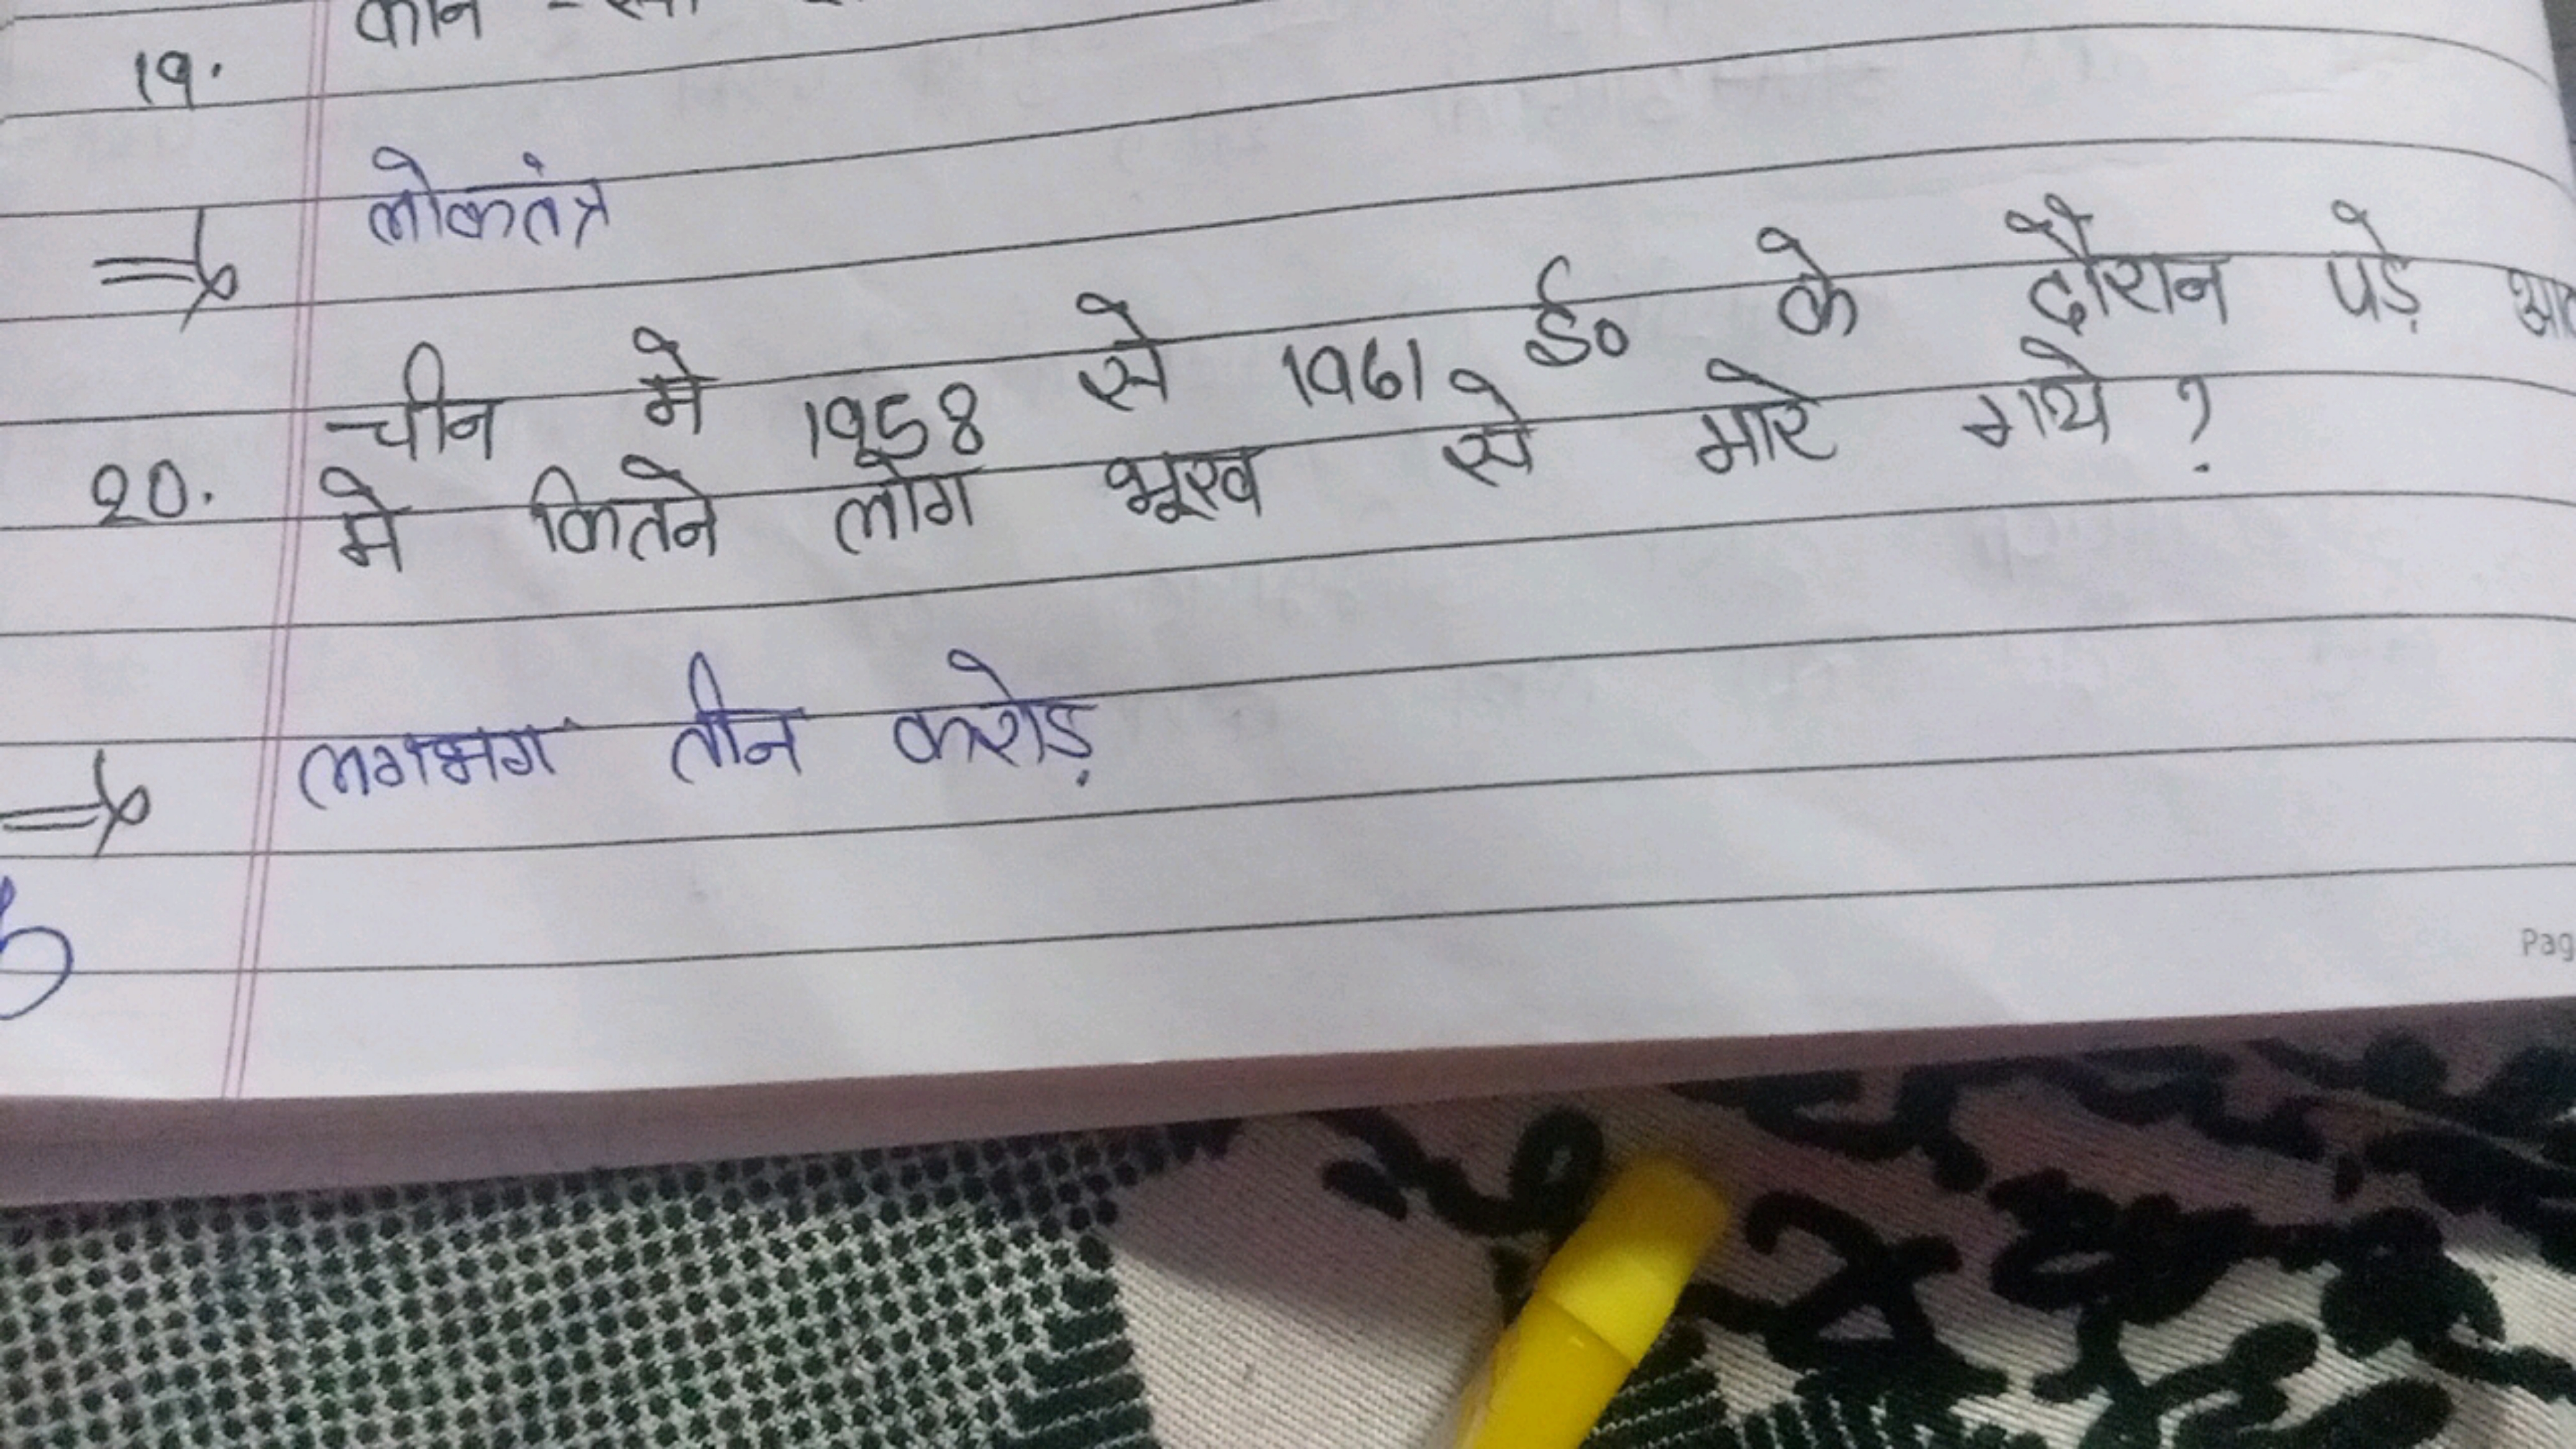 19. कौन
⇒ लोकतंत्र
20. चीन मे 1958 से 1961 ई० के दौरान पड़े
मे कितने लोग भूख से मारे गये ?
⇒ लगभग तीन करोड़
Pag